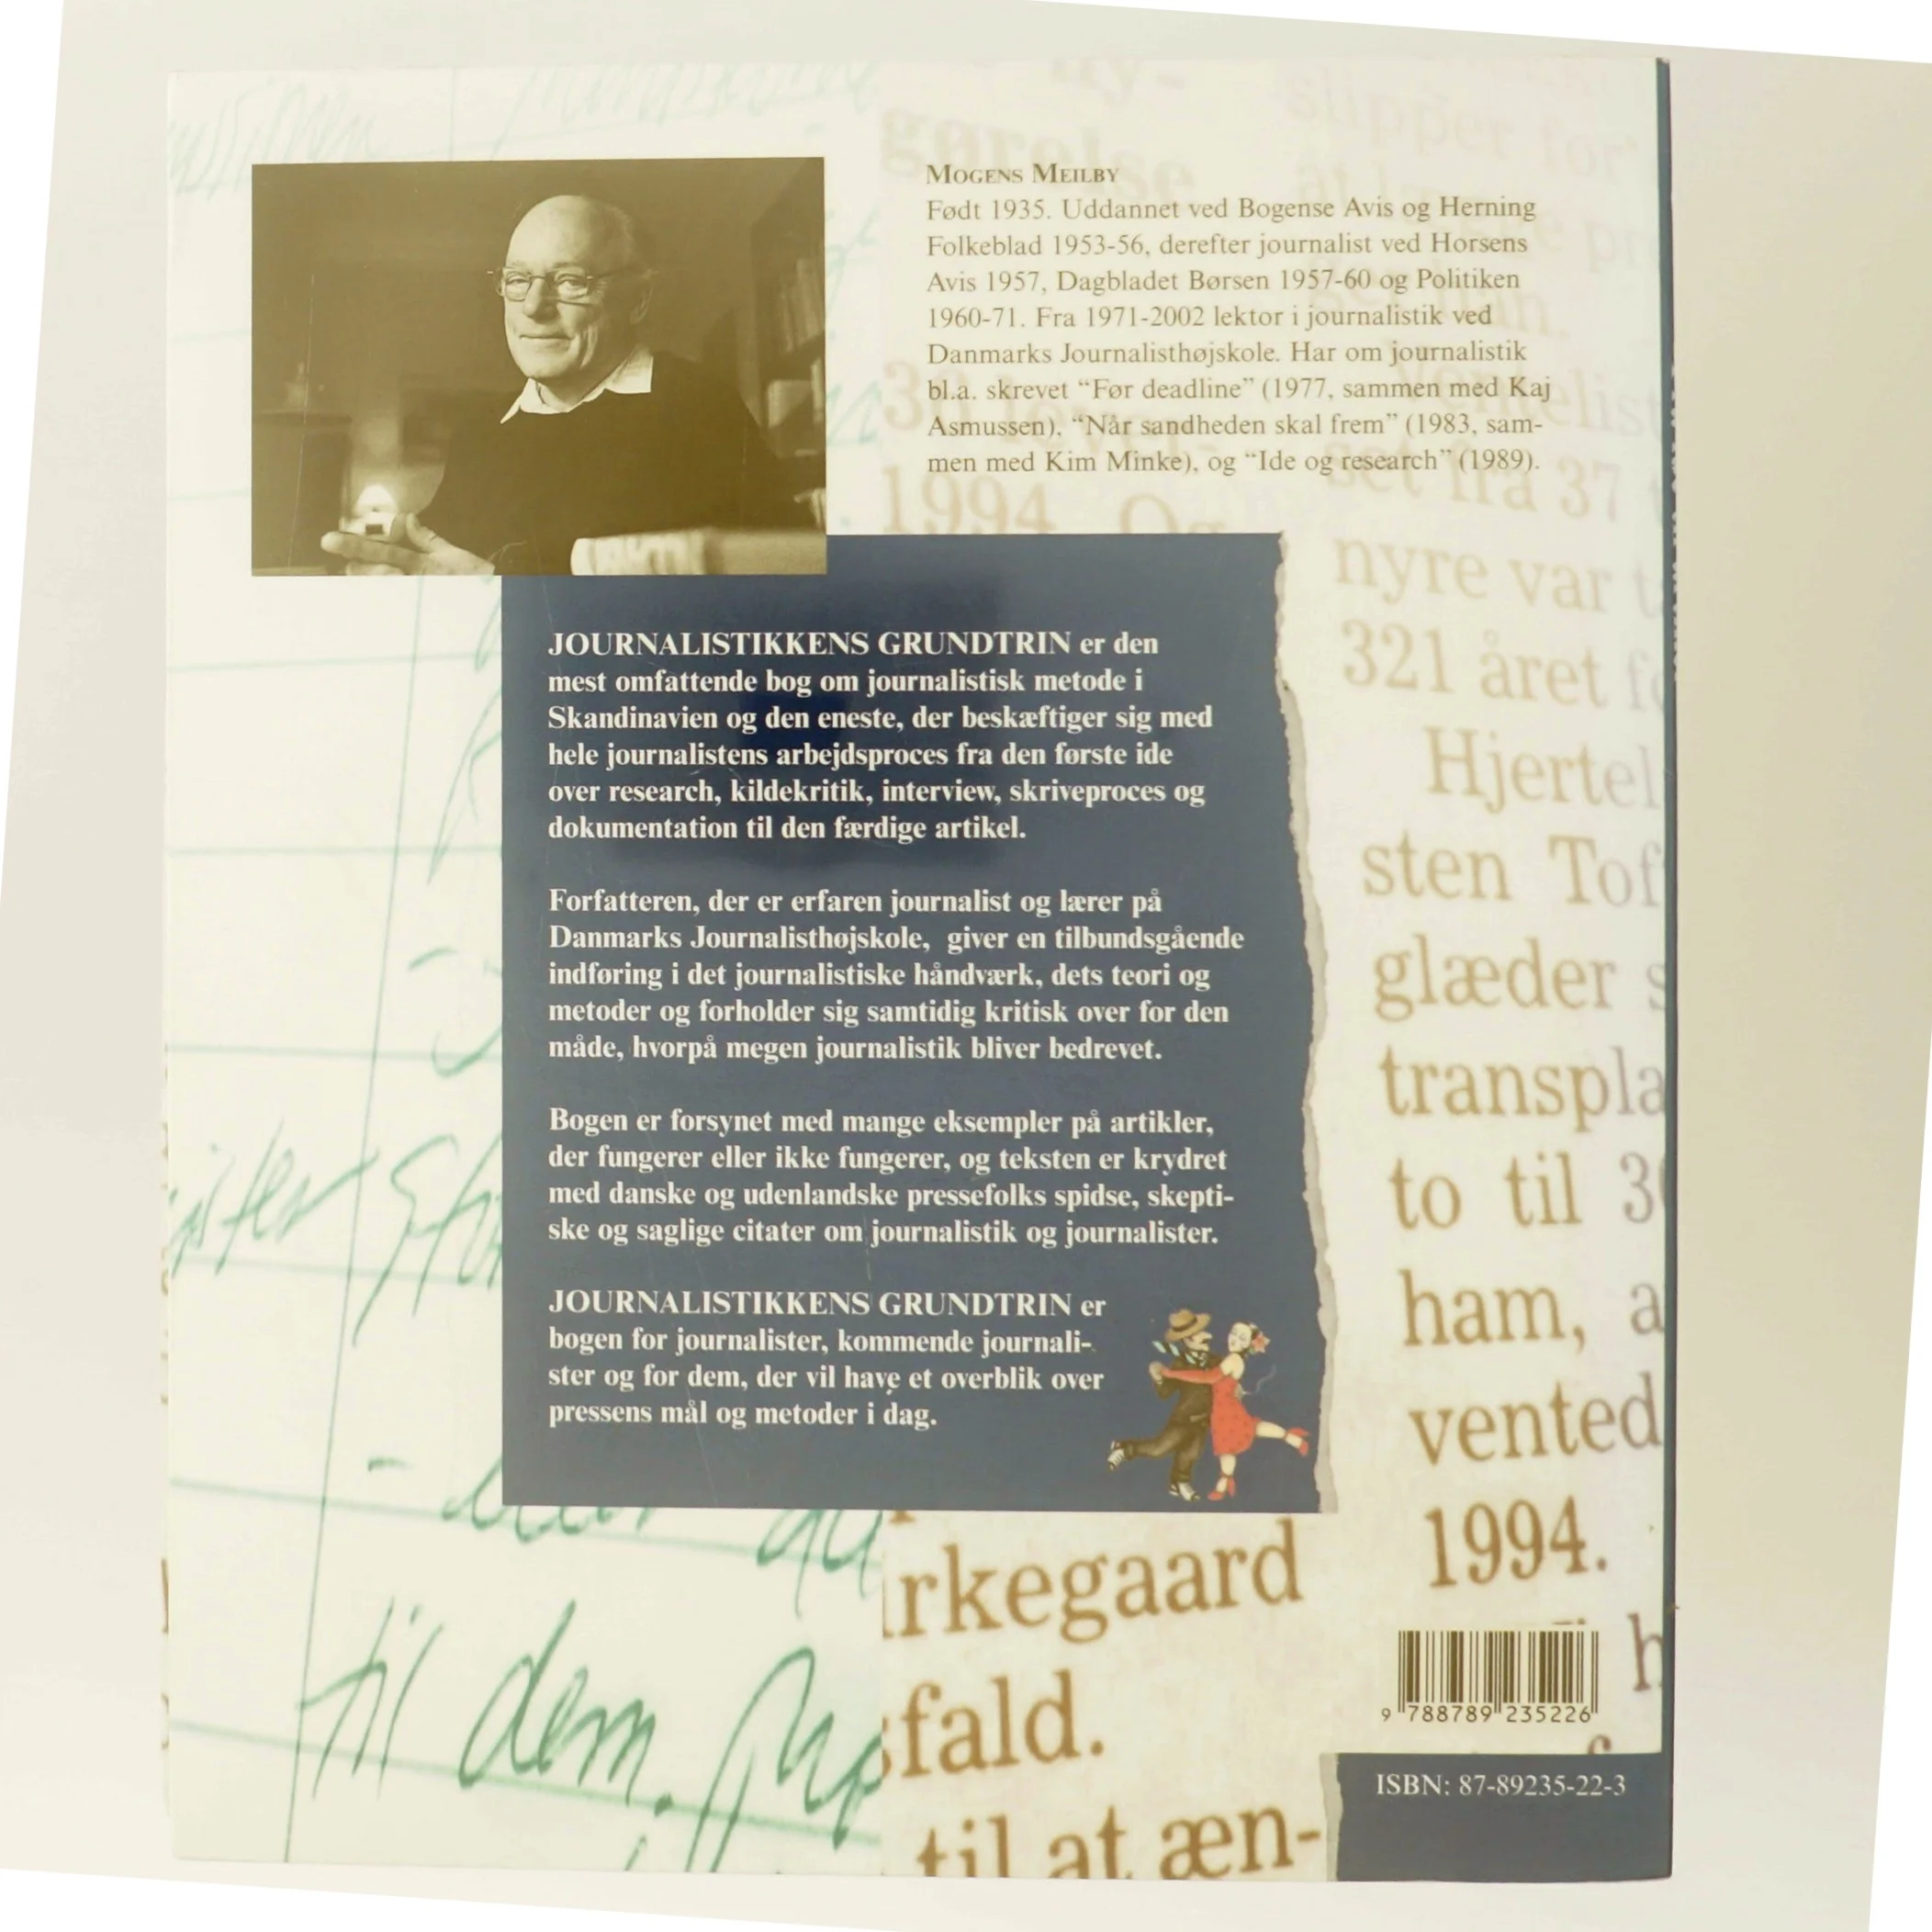 MOGENS MEILBY
Født 1935. Uddannet ved Bogense Avis og Herning
Folkeblad 1953-56, derefter journalist ved Horsens
Avis 1957, Dagbladet Børsen 1957-60 og Politiken
1960-71. Fra 1971-2002 lektor i journalistik ved
Danmarks Journalisthøjskole. Har om journalistik
bl.a. skrevet “Før deadline” (1977, sammen med Kaj
Asmussen), “Når sandheden skal frem” (1983, sam-
men med Kim Minke), og “Ide og research” (1989).
JOURNALISTIKKENS GRUNDTRIN er den
mest omfattende bog om journalistisk metode i
Skandinavien og den eneste, der beskæftiger sig med
hele journalistens arbejdsproces fra den første ide
over research, kildekritik, interview, skriveproces og
dokumentation til den færdige artikel.
Forfatteren, der er erfaren journalist og lærer på
Danmarks Journalisthøjskole, giver en tilbundsgående
indføring i det journalistiske håndværk, dets teori og
metoder og forholder sig samtidig kritisk over for den
måde, hvorpå megen journalistik bliver bedrevet.
Bogen er forsynet med mange eksempler på artikler,
der fungerer eller ikke fungerer, og teksten er krydret
med danske og udenlandske pressefolks spidse, skepti-
ske og saglige citater om journalistik og journalister.
JOURNALISTIKKENS GRUNDTRIN er
bogen for journalister, kommende journali-
ster og for dem, der vil have et overblik over
pressens mål og metoder i dag.
slipper for
gørelse
1994. Og
set fra 37
nyre var
321 året
Hjertel
sten Tof
glæder s
transpla
to til 3
ham, a
vented
1994.
rkegaard
sfald.
til at æn-
til dem.
9 788789 235226
ISBN: 87-89235-22-3